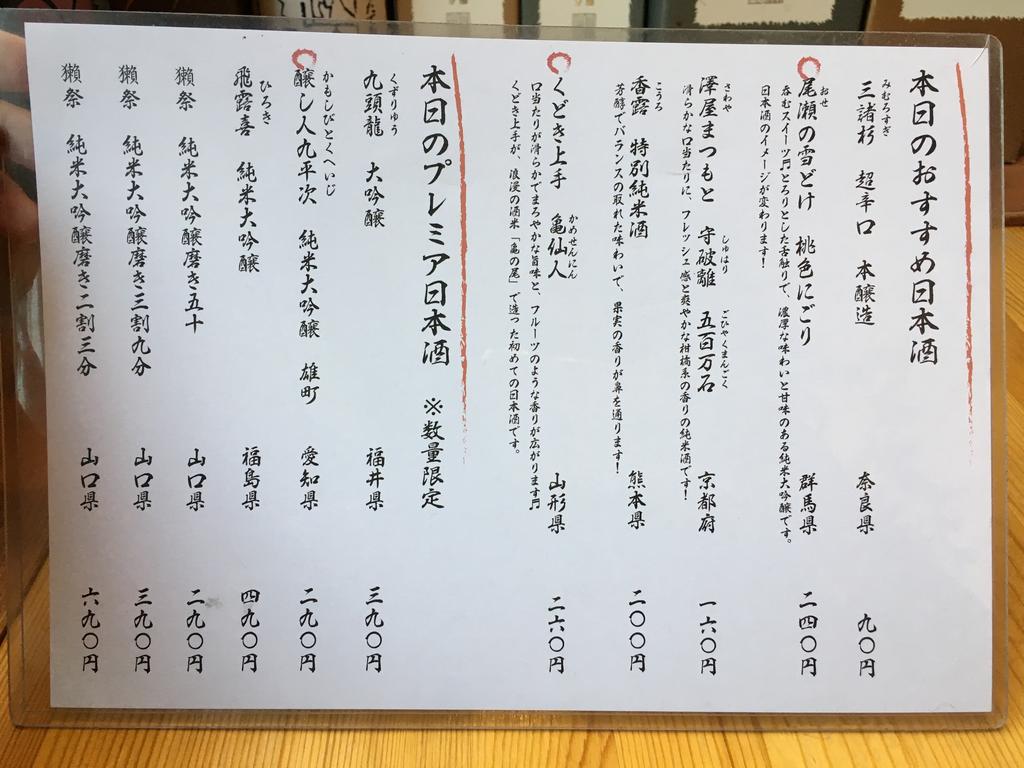 本日のおすすめ日本酒
みむろすぎ
三諸杉 超辛口 本醸造 奈良県 九〇円
おぜ
尾瀬の雪どけ 桃色にごり 群馬県 二四〇円
呑むスイーツ!とろりとした舌触りで、濃厚な味わいと甘味のある純米大吟醸です。
日本酒のイメージが変わります!
さわや しゅはり ごひゃくまんごく
澤屋まつもと 守破離 五百万石 京都府 一六〇円
滑らかな口当たりに、フレッシュ感と爽やかな柑橘系の香りの純米酒です!
こうろ
香露 特別純米酒 熊本県 二〇〇円
芳醇でバランスの取れた味わいで、果実の香りが鼻を通ります!
かめせんにん
くどき上手 亀仙人 山形県 二六〇円
口当たりが滑らかでまろやかな旨味と、フルーツのような香りが広がります
くどき上手が、浪漫の酒米「亀の尾」で造った初めての日本酒です。
本日のプレミア日本酒 ※数量限定
くずりゅう
九頭龍 大吟醸 福井県 三九〇円
かもしびとくへいじ
醸し人九平次 純米大吟醸 雄町 愛知県 二九〇円
ひろき
飛露喜 純米大吟醸 福島県 四九〇円
獺祭 純米大吟醸磨き五十 山口県 二九〇円
獺祭 純米大吟醸磨き三割九分 山口県 三九〇円
獺祭 純米大吟醸磨き二割三分 山口県 六九〇円